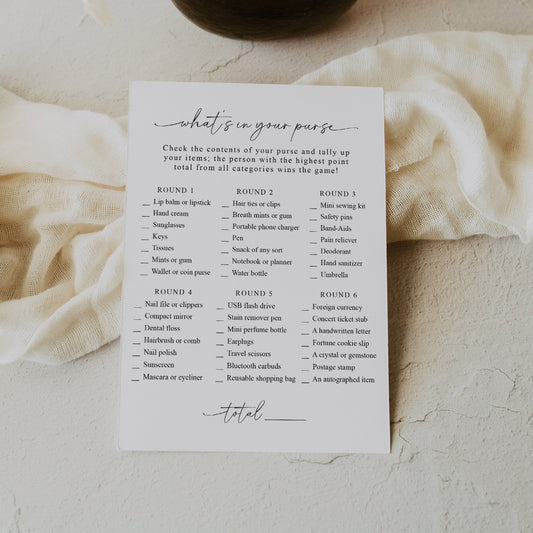 what's in your purse
Check the contents of your purse and tally up
your items; the person with the highest point
total from all categories wins the game!
ROUND 1
__ Lip balm or lipstick
__ Hand cream
__ Sunglasses
__ Keys
__ Tissues
__ Mints or gum
__ Wallet or coin purse
ROUND 2
__ Hair ties or clips
__ Breath mints or gum
__ Portable phone charger
__ Pen
__ Snack of any sort
__ Notebook or planner
__ Water bottle
ROUND 3
__ Mini sewing kit
__ Safety pins
__ Band-Aids
__ Pain reliever
__ Deodorant
__ Hand sanitizer
__ Umbrella
ROUND 4
__ Nail file or clippers
__ Compact mirror
__ Dental floss
__ Hairbrush or comb
__ Nail polish
__ Sunscreen
__ Mascara or eyeliner
ROUND 5
__ USB flash drive
__ Stain remover pen
__ Mini perfume bottle
__ Earplugs
__ Travel scissors
__ Bluetooth earbuds
__ Reusable shopping bag
ROUND 6
__ Foreign currency
__ Concert ticket stub
__ A handwritten letter
__ Fortune cookie slip
__ A crystal or gemstone
__ Postage stamp
__ An autographed item
total ______